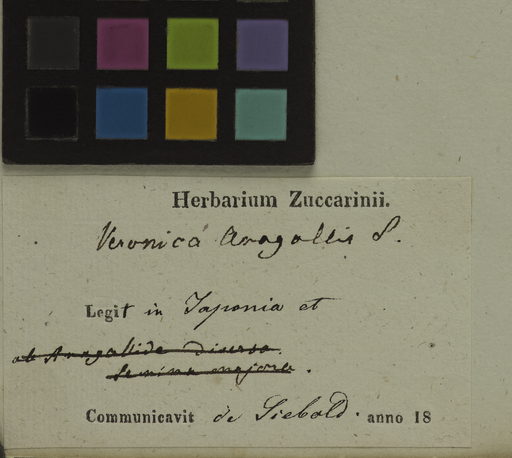 Herbarium Zuccarinii.
Veronica Anagallis S.
Legit in Japonia et
ab Anagallide diversa
semina majora.
Communicavit de Siebold. anno 18